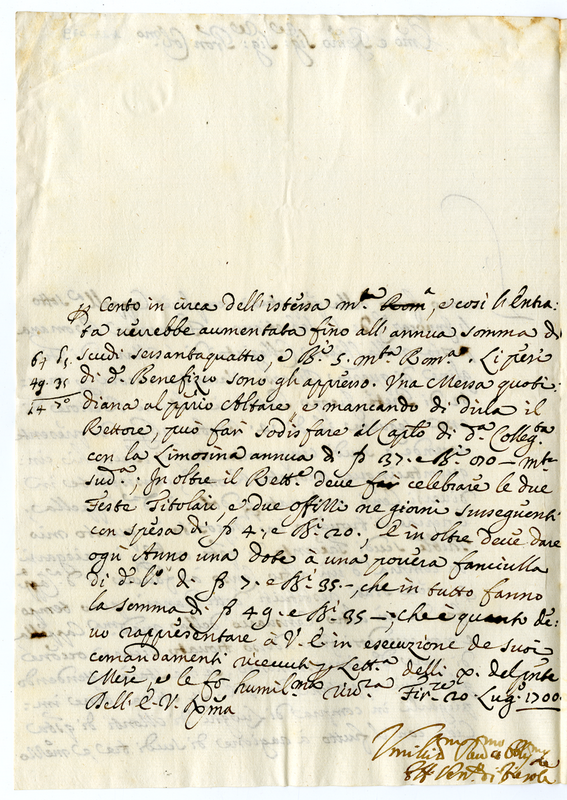 Cento in circa dell'istessa m.ta Rom.a, e così l'Entra-
ta verrebbe aumentata fino all'annua somma di
64 85. scudi sessantaquattro, e B.i 5. m.ta Rom.a. Li pesi
49. 35 di d.o Benefizio sono gl'appresso. Una Messa quoti-
14 70 diana al pp.rio Altare, e mancando di dirla il
Rettore, può far sodisfare al Cap.lo di d.a Colleg.ta
con la Limosina annua di 37. e B.i 070 — m.ta
sud.a; In oltre il Rett.e deve far celebrare le due
Feste Titolari, e due offitii ne giorni susseguenti
con spesa di 4. e B.i 20., E in oltre deve dare
ogn'Anno una Dote à una povera fanciulla
di d.o l.o di 7. e B.i 35 -, che in tutto fanno
la somma di 49. e B.i 35 -; che è quanto de-
vo rappresentare à V. E in esecuzione de suoi
comandamenti ricevuti p. Lett.a delli p. del pnte
Mese, e le fo humil.ma riv.za Fir.ze 20 Lug.o 1700.
Dell' E. V. Rma